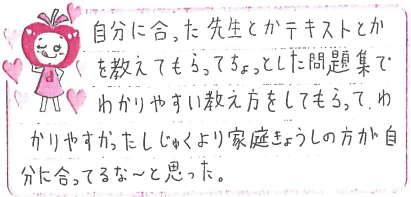 自分に合った先生とかテキストとか
を教えてもらってちょっとした問題集で
わかりやすい教え方をしてもらって、わ
かりやすかったしじゅくより家庭きょうしの方が自
分に合ってるな〜と思った。